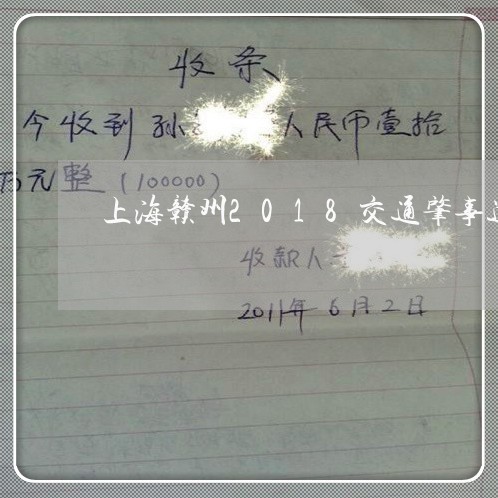 收条
今收到孙 人民币壹拾
万元整(100000)
上海赣州2018交通肇事
收款人
2011年6月2日